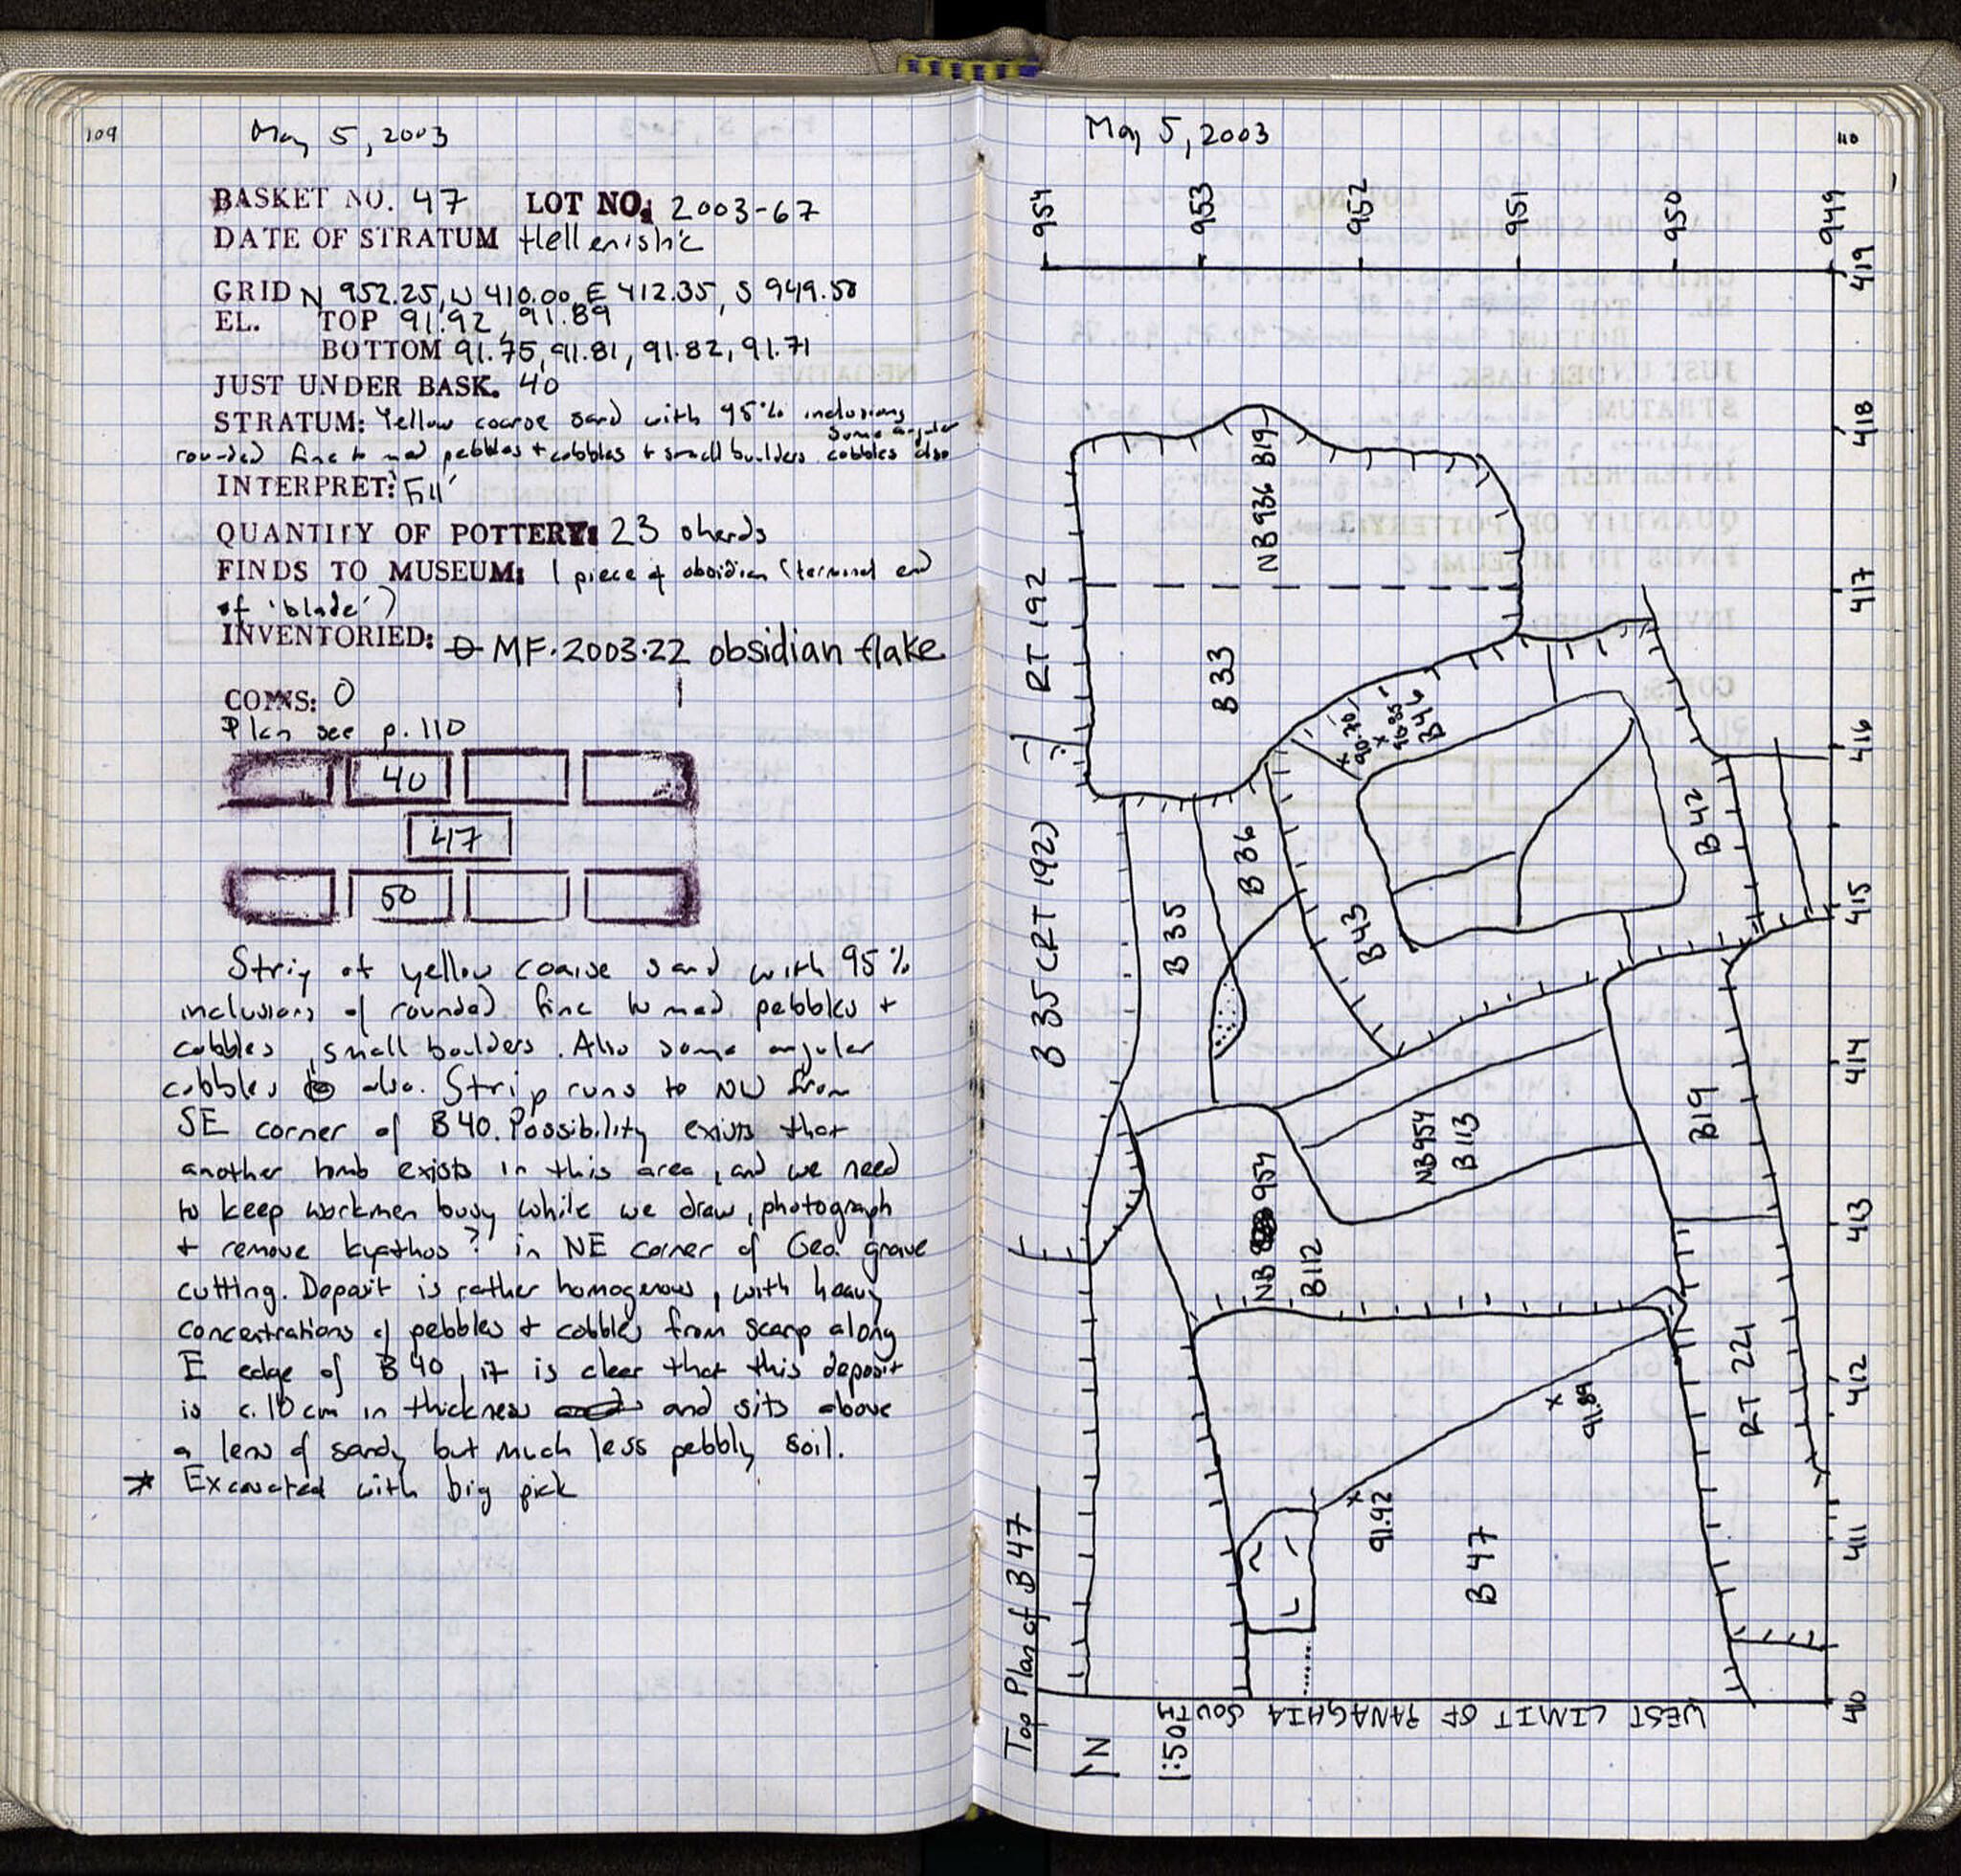 109
May 5, 2003
BASKET NO. 47 LOT NO. 2003-67
DATE OF STRATUM Hellenistic
GRID N 952.25, W 410.00, E 412.35, S 949.50
EL. TOP 91.92, 91.89
BOTTOM 91.75, 91.81, 91.82, 91.71
JUST UNDER BASK. 40
STRATUM: Yellow coarse sand with 95% inclusions
some angular
rounded fine to med pebbles + cobbles + small boulders. cobbles also
INTERPRET: Fill
QUANTITY OF POTTERY: 23 sherds
FINDS TO MUSEUM: 1 piece of obsidian (terminal end
of 'blade')
INVENTORIED: MF.2003.22 obsidian flake
COINS: 0
Plan see p. 110
40
47
50
Strip of yellow coarse sand with 95%
inclusions of rounded fine to med pebbles +
cobbles, small boulders. Also some angular
cobbles also. Strip runs to NW from
SE corner of B40. Possibility exists that
another tomb exists in this area, and we need
to keep workmen busy while we draw, photograph
+ remove kyathos? in NE corner of Geo. grave
cutting. Deposit is rather homogenous, with heavy
concentrations of pebbles + cobbles from scarp along
E edge of B40, it is clear that this deposit
is c. 10 cm in thickness and sits above
a lens of sandy but much less pebbly soil.
* Excavated with big pick
May 5, 2003
110
954
953
952
951
950
949
419
418
417
416
415
414
413
412
411
410
NB 936 B19
RT 192
B 33
90.70
90.85
B46
B 42
B 36
B 35 (RT 192)
B 35
B43
B19
NB 954
B 113
NB 954
B112
RT 221
91.89
91.92
B 47
Top Plan of B47
N
1:50
WEST LIMIT OF PANAGHIA SOUTH